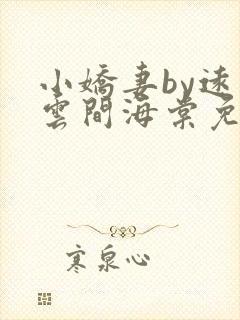 小嬌妻by遠
雲間海棠免
寒泉心